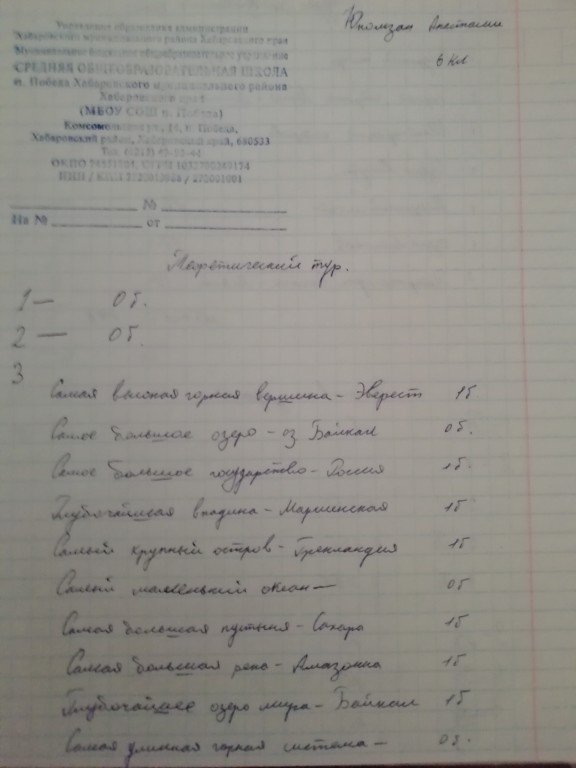 Управление образования администрации
Хабаровского муниципального района Хабаровского края
Муниципальное бюджетное общеобразовательное учреждение
СРЕДНЯЯ ОБЩЕОБРАЗОВАТЕЛЬНАЯ ШКОЛА
п. Победа Хабаровского муниципального района
Хабаровского края
(МБОУ СОШ п. Победа)
Комсомольская ул., 14, п. Победа,
Хабаровский район, Хабаровский край, 680533
Тел.
ОКПО ОГРН
ИНН / КПП
№
На № от
6 кл
Теоретический тур.
1 — 0 б.
2 — 0 б.
3
Самая высокая горная вершина - Эверест 1б.
Самое большое озеро - оз Байкал 0б.
Самое большое государство - Россия 1б.
Глубочайшая впадина - Марианская 1б
Самый крупный остров - Гренландия 1б
Самый маленький океан — 0б
Самая большая пустыня - Сахара 1б
Самая большая река - Амазонка 1б
Глубочайшее озеро мира - Байкал 1б
Самая длинная горная система — 0б.